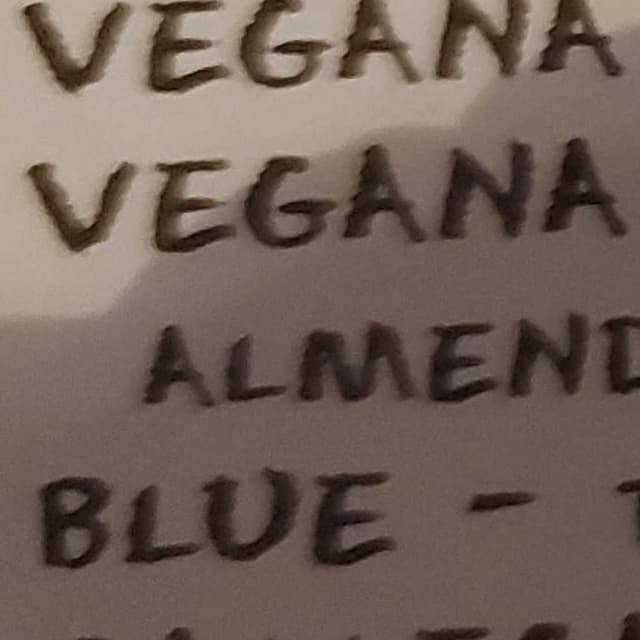 VEGANA
VEGANA
ALMEND
BLUE -